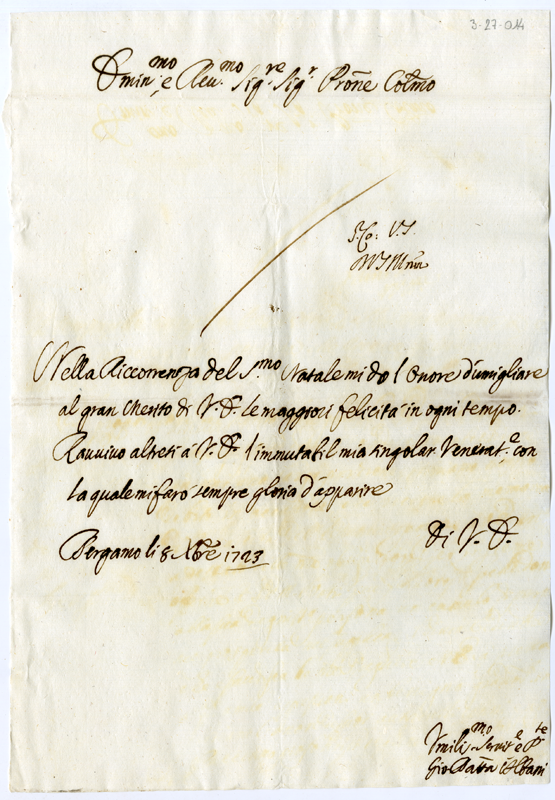 3-27-014
Emin^mo; e Reu^mo Sig^re. Sig^r Prõne Colmo
Nella Riccorrenza del S.^mo Natale mi do l Onore d'umigliare
al gran Merito di V. E. le maggiori felicità in ogni tempo.
Rauuiuo altresi à V. E. l'immutabil mia singolar Venerat.^e con
la quale mi farò sempre gloria d'apparire
di V. E.
Bergamo li 8 Xbre 1723
Vmiliss^mo Seruit^e
Gio Batta Albani